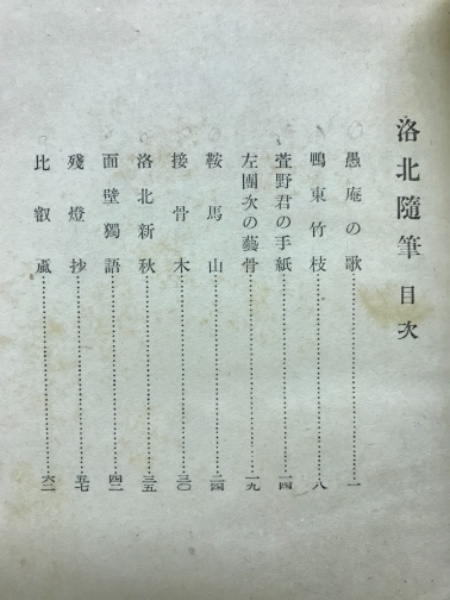 洛北隨筆 目次
愚庵の歌……一
鴨東竹枝……八
萱野君の手紙……一四
左團次の藝骨……一九
鞍馬山……二四
接骨木……三〇
洛北新秋……三五
面壁獨語……四二
殘燈抄……五七
比叡颪……六二